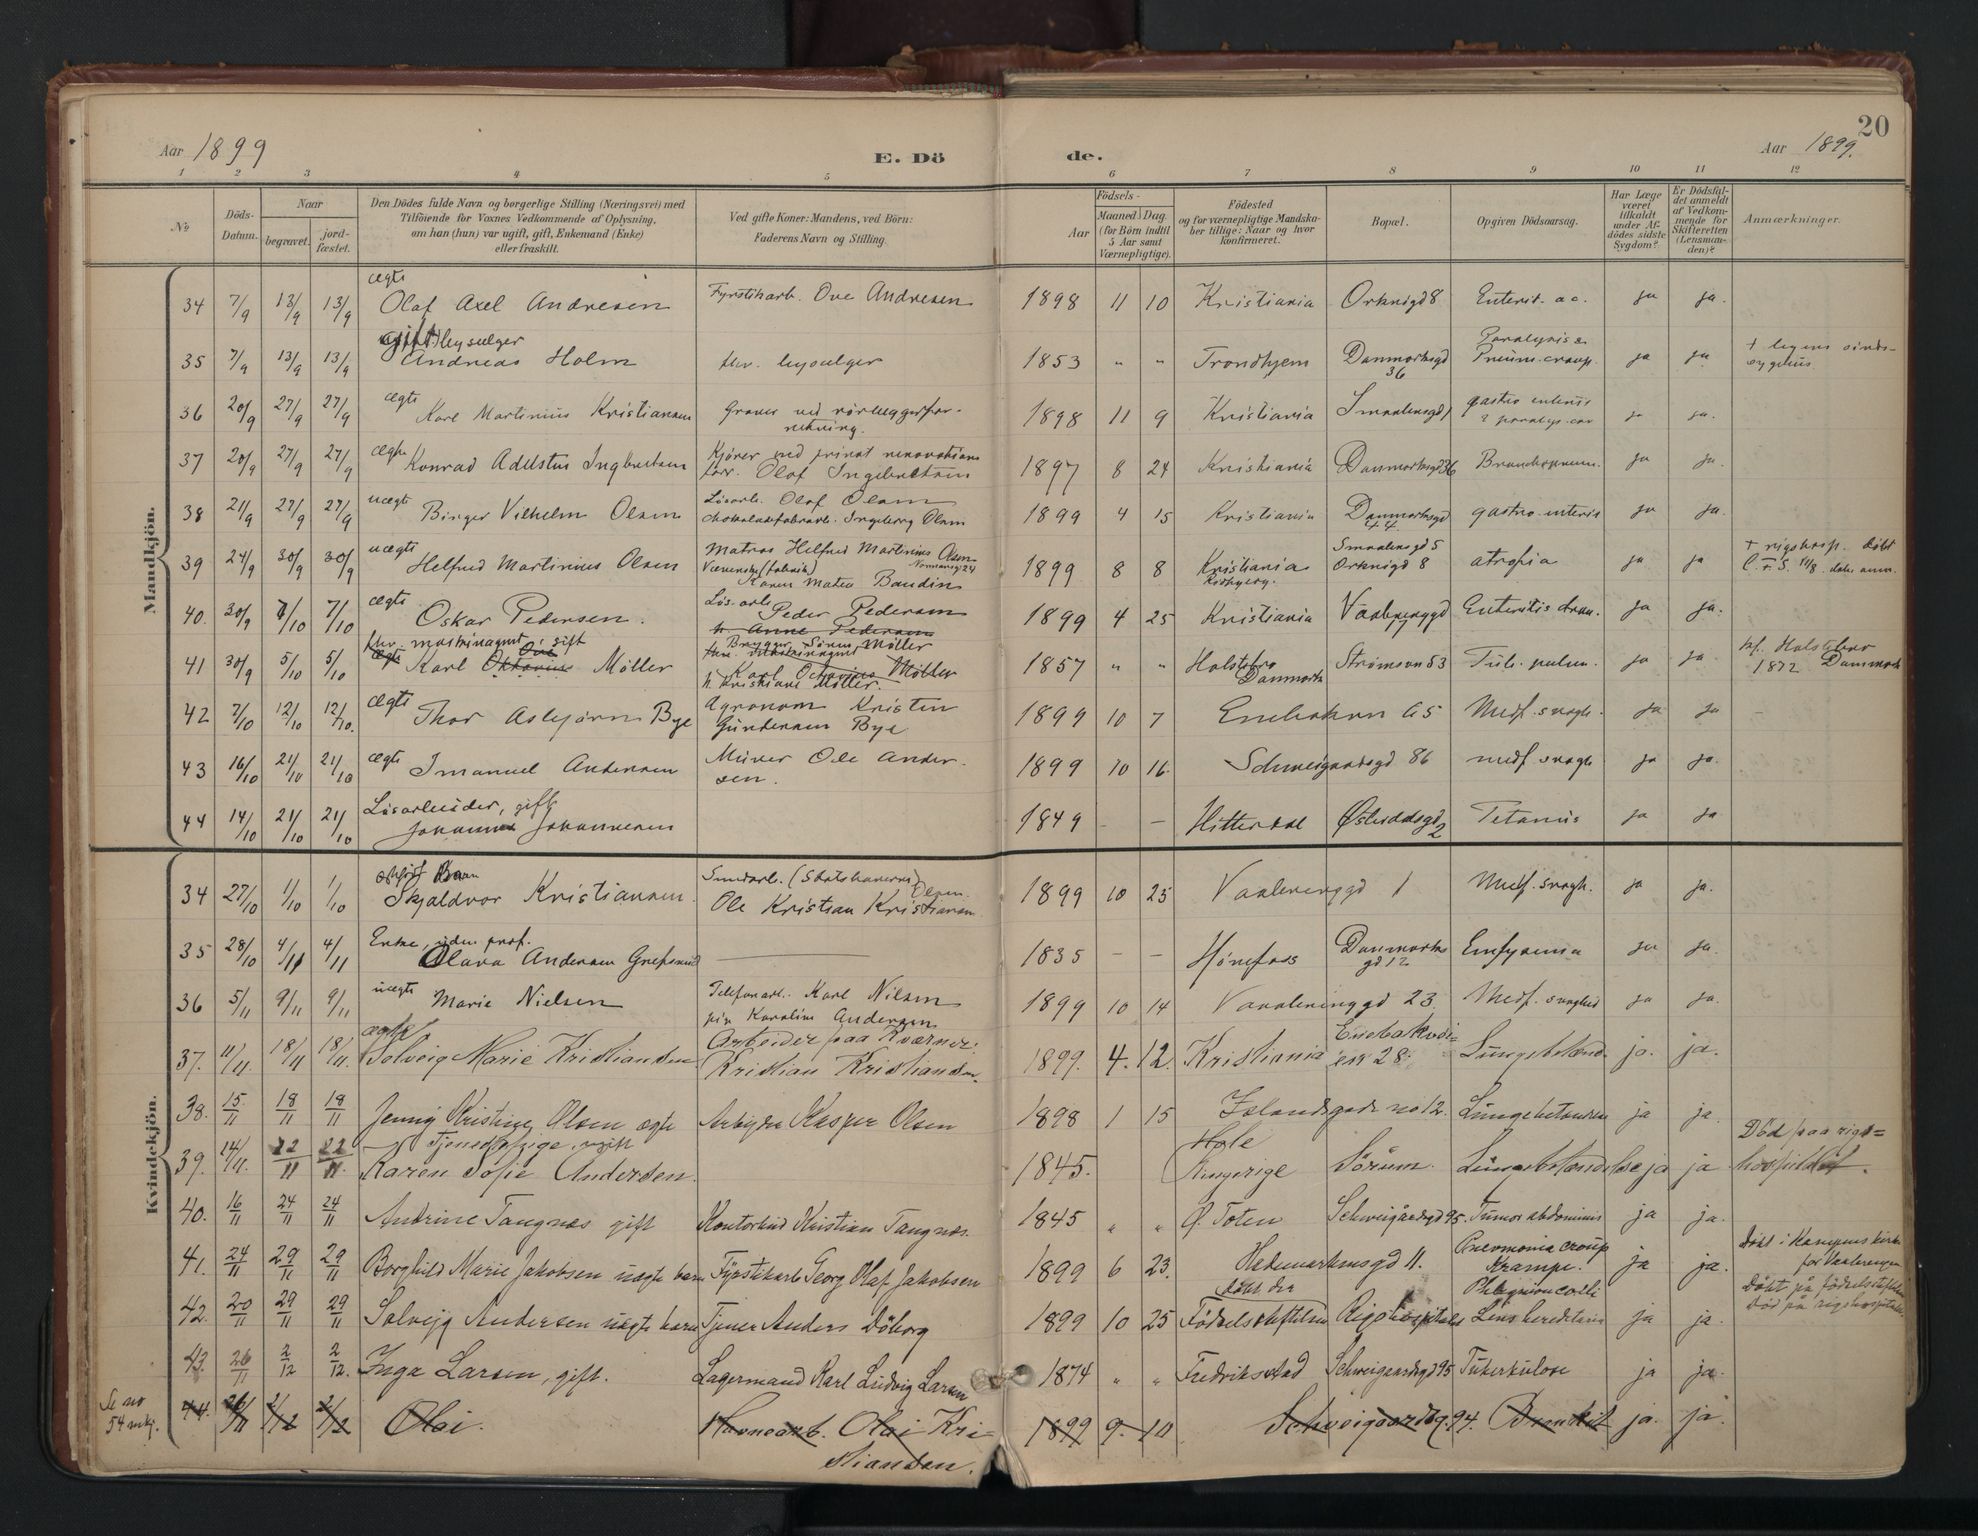 20
Aar 1899
E. Dö
de.
Aar 1899.
1 2 3 4 5 6 7 8 9 10 11 12
No
Döds-Datum.
Naar
begravet.
jord-fæstet.
Den Dödes fulde Navn og borgerlige Stilling (Næringsvei) med
Tilföiende for Voxnes Vedkommende af Oplysning,
om han (hun) var ugift, gift, Enkemand (Enke)
eller fraskilt.
Ved gifte Koner: Mandens, ved Börn:
Faderens Navn og Stilling.
Födsels-
Aar
Maaned Dag.
(for Börn indtil
5 Aar samt
Værnepligtige).
Födested
og for værnepligtige Mandska-
ber tillige: Naar og hvor
konfirmeret.
Bopæl.
Opgiven Dödsaarsag.
Har Læge
været
tilkaldt
under Af-
dödes sidste
Sygdom?
Er Dödsfal-
det anmeldt
af Vedkom-
mende for
Skifteretten
(Lensman-
den)?
Anmærkninger.
Mandkjön.
34 7/9 13/9 13/9 ægte Olaf Axel Andresen Fyrstikarb. Ove Andresen 1898 11 10 Kristiania Orknigd 8 Enterit. ac. ja ja.
35 7/9 13/9 13/9 gift Andreas Holm thv. 1853 " " Trondhjem Danmarksgd 36 Paralysis & Pneum. croup. ja ja +
36 20/9 27/9 27/9 ægte Karl Martinius Kristiansen Graver ved 1898 11 9 Kristiania Smaalensgd gastro enteris ja ja.
37 20/9 27/9 27/9 ægte Konrad Adelsten Ingbretsen Kjører ved privat renovations Olaf Ingebretsen 1897 8 24 Kristiania Danmarksgd 36 Bronchopneum. ja ja.
38 21/9 27/9 27/9 uægte Birger Vilhelm Olsen Løsarb. Olaf Olsen Ingeborg Olsen 1899 4 15 Kristiania Danmarksgd 44 gastro-enteris ja ja.
39 24/9 30/9 30/9 uægte Helfred Martinius Olsen Matros Helfred Martinius Olsen Karen Matea Baudin 1899 8 8 Kristiania Smaalensgd 5 Orknigd 8 atrofia ja ja + rigshosp. døbt
40. 30/9 7/10 7/10 ægte Oskar Pedersen. Løsarb. Peder Pedersen h. Anne Pedersen 1899 4 25 Kristiania Enteritis ja ja
41 30/9 5/10 5/10 fhv. gift Karl Oktavius Möller Brygger Sören Möller Karl Octavius Möller h. Kristiane Möller. 1857 " " Holstebro Danmark Strømsvn 53 Tub. pulm. ja ja. kf. Holstebro 1872 Danmark
42 7/10 12/10 12/10. ægte Thor Asbjørn Bye Agronom Kristen Gundersen Bye 1899 10 7 Enebakvn 65 Medf. svagh. ja ja
43 16/10 21/10 21/10 ægte Imanuel Andersen Murer Ole Ander-
sen. 1899 10 16. Schweigaardsgd 86 medf. svagh ja ja.
44 14/10 21/10 21/10 Løsarbeider, gift Johannes Johannesen 1849 - - Hitterdal Østerdalsgd 2 Tetanus ja ja
Kvindekjön.
34 27/10 1/10 1/10 Skjaldvor Kristiansen Ole Kristian Kristiansen 1899 10 25 Vaalerenggd 1 Medf. svagh. ja ja.
35 28/10 4/11 4/11 Enke, uden prof. Olava Andersen Grefsrud 1835 - - Hønefoss Danmarksgd 12 Emfysema ja ja.
36 5/11 9/11 9/11 uægte Marie Nielsen Telefonarb. Karl Nilsen pike Karoline Andersen 1899 10 14 Vaalerenggd 23 Medf. svaghed ja ja.
37. 11/11 18/11 18/11. ægte Solveig Marie Kristiansen Arbeider paa Kværner: Kristian Kristiansen. 1899. 4. 12. Kristiania Enebakvei-
en 28. Lungebetænd ja. ja.
38. 15/11 18/11 18/11 Jenny Kristine Olsen ægte Arbeider Kasper Olsen 1898 1 15 Islandsgade no 12. Lungebetændelse ja ja.
39. 14/11. 22/11 22/11. Tjenestepige, ugift Karen Sofie Andersen. 1845. Hole Ringerige Sörum. Lungebetændelse ja ja Död paa rigs=
hospitalet.
40. 16/11 24/11 24/11 Andrine Tangnæs gift Kontorbud Kristian Tangnæs. 1845 " " Ø. Toten Schweigårdsgd 95. Tumor abdominis ja ja.
41. 24/11 29/11 29/11 Borghild Marie Jakobsen uægte barn Fyrstikarb Georg Olaf Jakobsen 1899 6 23. Hedemarkensgd 11. Pnevmonia croup Krampe. ja ja. Döbt i Kampens kirke for Vaalerengen
42. 20/11 29/11 29/11 Solveig Andersen uægte barn Tjener Anders Döborg 1899 10 25 Födselsstiftelsen Rigshospitalet Lues hereditaria ja ja. Döbt på födselsstiftelsen Död på rigshospitalet
43. 26/11 2/12 2/12. Inga Larsen, gift. Lagermand Karl Ludvig Larsen 1874 " " Fredriksstad Schweigaardsgd 95 Tuberkulose ja ja.
Se no
54 mkj. 44. 26/11 2/12 2/12 Olai. Havnearb. Olai Kri-
stiansen. 1899 9- 10 Schweigaardsg. 94. Bronkit ja. ja.